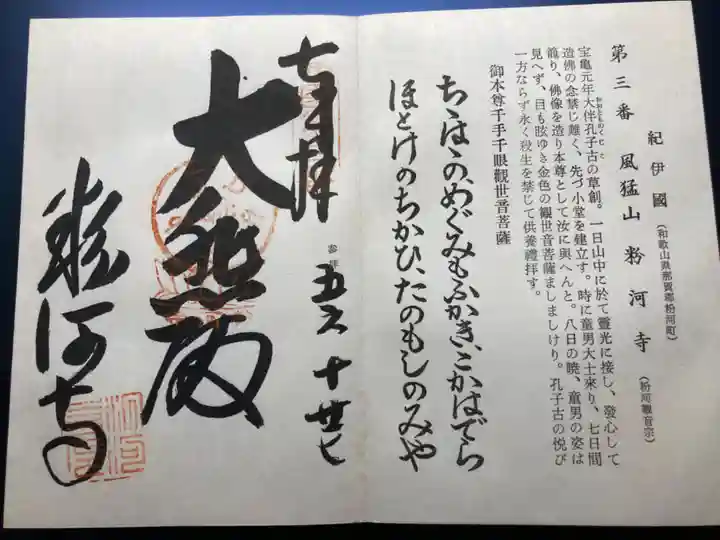 紀伊國 (和歌山県那賀郡粉河町)
第三番 風猛山 粉河寺 (粉河観音宗)
宝亀元年大伴孔子古の草創。一日山中に於て霊光に接し、發心して
造佛の念禁じ難く、先づ小堂を建立す。時に童男大士來り、七日間
籠り、佛像を造り本尊として汝に與へんと。八日の暁、童男の姿は
見へず、目も眩ゆき金色の観世音菩薩ましましけり。孔子古の悦び
一方ならず永く殺生を禁じて供養禮拝す。
御本尊千手千眼觀世音菩薩
ちゝはゝの、めぐみもふかき、こかはでら
ほとけのちかひ、たのもしのみや
奉拝
参拝 五六 十 廿七
大悲殿
粉河寺